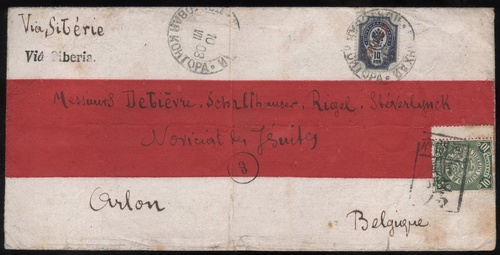 Via Sibérie
Via Siberia.
10
VII 03
10
Messieurs Detièvre. Schallhauser, Rigel. Stéverlynck
Noviciat des Jésuites
8
Arlon
Belgique
10
10